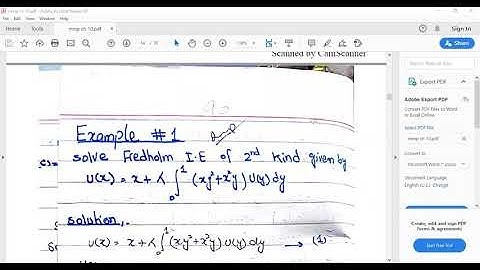 mmp ch 10.pdf
File Edit View Window Help
Home Tools
mmp ch 10.pdf
Sign In
Share
Scanned by CamScanner
Export PDF
Adobe Export PDF
Convert PDF Files to Word
or Excel Online
Select PDF File
mmp ch 10.pdf
Convert to
Document Language:
Create, edit and sign PDF
forms & agreements
Start Free Trial
Example #1
solve Fredholm I.E of 2nd kind given by
U(x) = x + λ ∫₀¹ (xy²+x²y) U(y) dy
solution:.
U(x) = x + λ ∫₀¹ (xy²+x²y) U(y) dy → (1)